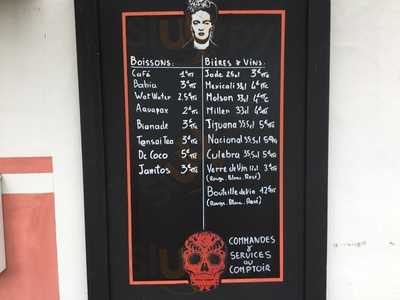 Boissons:
Café 1€
Bahia 3€
WatWater 2.5€
Aquapax 2€
Bionade 3€
Tensai Tea 3€
De Coco 5€
Jarritos 3€
Bières & Vins:
Jade 25cl 3€
Mexicali 33cl 4€
Molson 33cl 4€
Miller 33cl 4€
Tijuana 35.5cl 5€
Nacional 35.5cl 5€
Culebra 35.5cl 5€
Verre de Vin 12cl 3€
(Rouge. Blanc. Rosé)
Bouteille de Vin 12€
(Rouge. Blanc. Rosé)
COMMANDES
&
SERVICES
AU
COMPTOIR